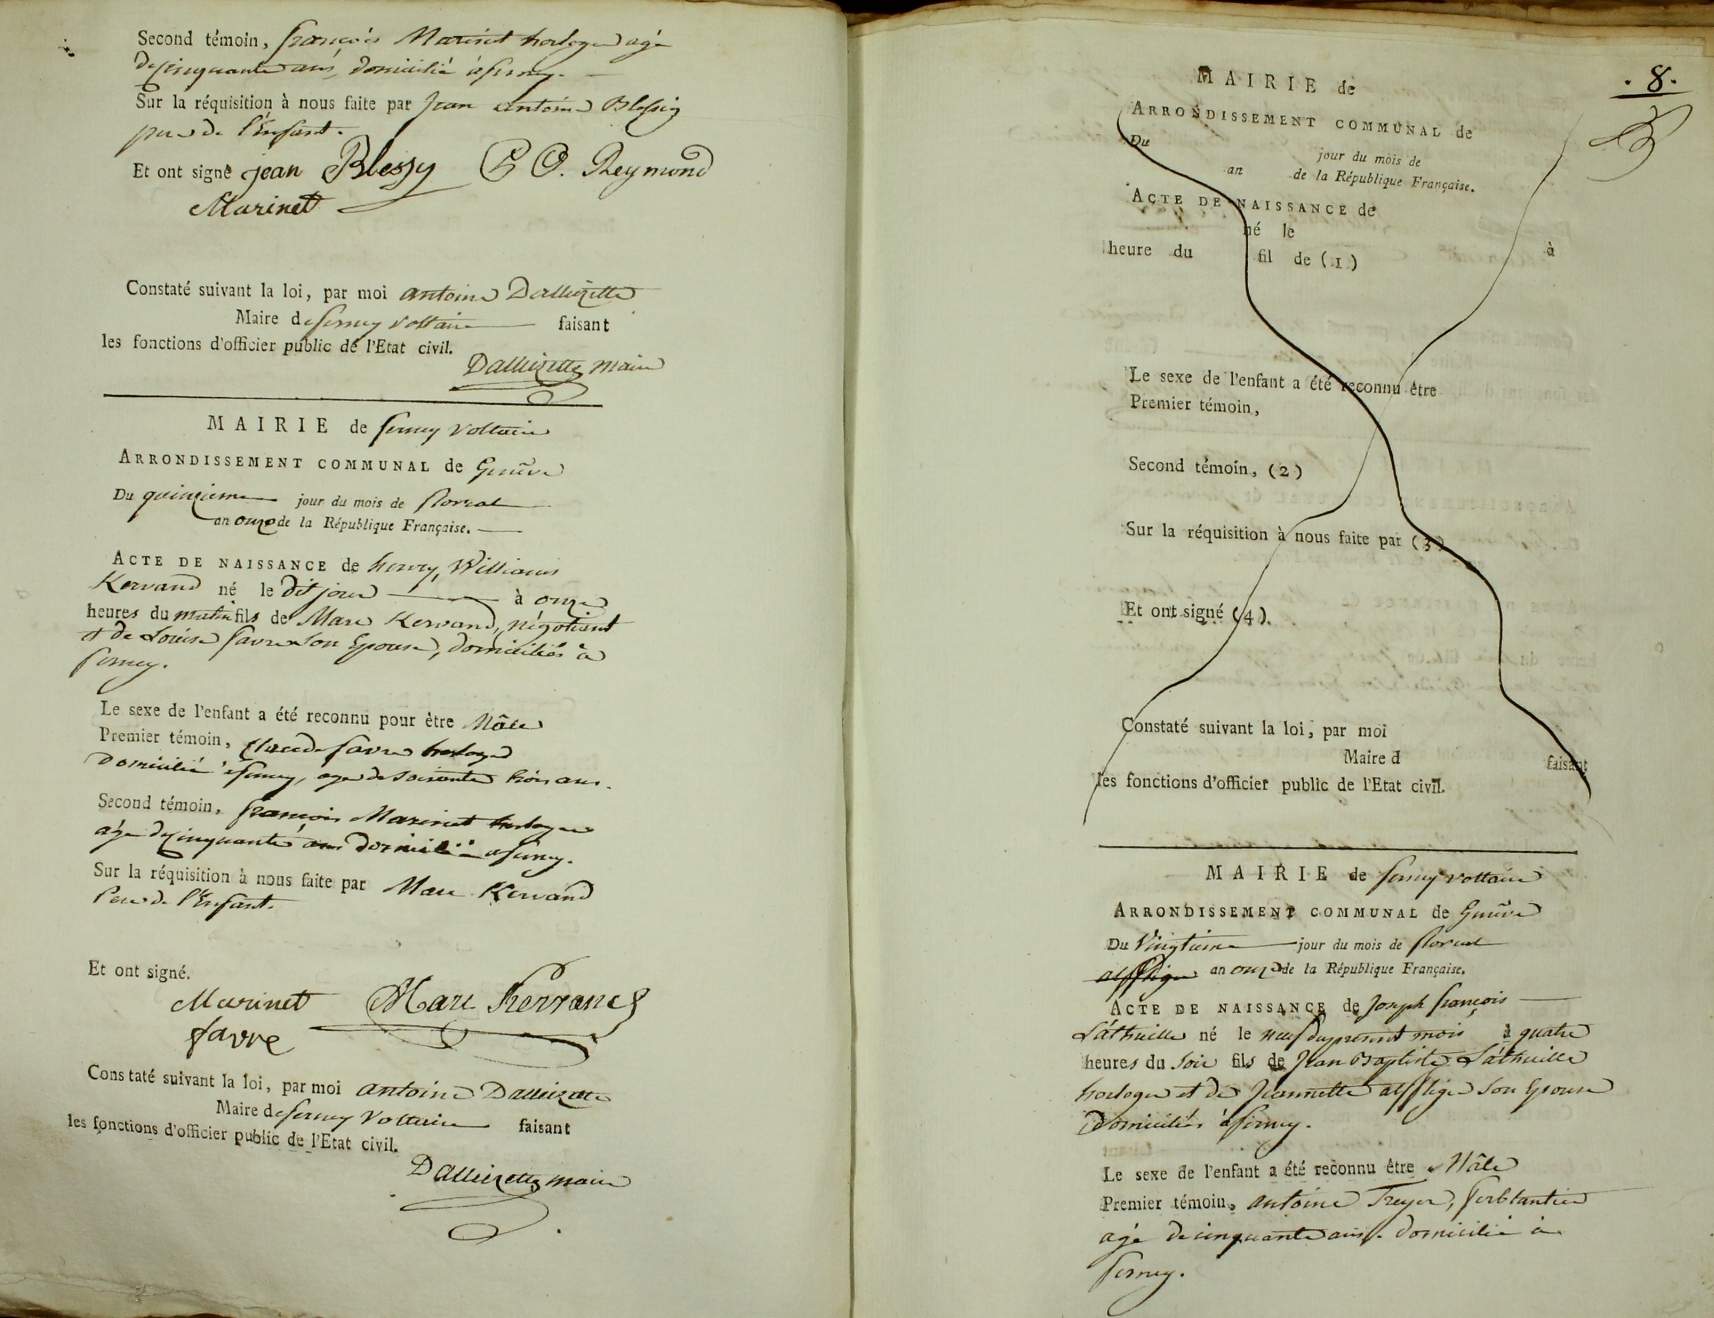 Second témoin, francois Marinet horloger agé
de cinquante ans, domicilié a ferney.
Sur la réquisition à nous faite par Jean antoine Blessy
pere de l'Enfant.
Et ont signé jean Blessy Reymond
Marinet
Constaté suivant la loi, par moi antoine Dallizette
Maire de ferney Voltaire faisant
les fonctions d'officier public de l'Etat civil.
Dallizette maire
MAIRIE de ferney Voltaire
ARRONDISSEMENT COMMUNAL de Genève
Du quinzieme jour du mois de floreal
an onze de la République Française.
ACTE DE NAISSANCE de henry, Williams
Kervand né le dit jour à onze
heures du matin fils de Marc Kervand, négotiant
et de Louise favre Son Epouse, domiciliés à
ferney.
Le sexe de l'enfant a été reconnu pour être Mâle
Premier témoin, Claude favre horloger
Domicilié a ferney, age de Soixante trois ans.
Second témoin, francois Marinet horloger
agé de cinquante ans domicilié a ferney.
Sur la réquisition à nous faite par Marc Kervand
Pere de l'Enfant.
Et ont signé.
Marinet Marc Kervand
favre
Constaté suivant la loi, par moi antoine Dallizette
Maire de ferney Voltaire faisant
les fonctions d'officier public de l'Etat civil.
Dallizette maire
. 8 .
MAIRIE de
ARRONDISSEMENT COMMUNAL de
Du jour du mois de
an de la République Française.
ACTE DE NAISSANCE de
né le à
heure du fil de (1)
Le sexe de l'enfant a été reconnu être
Premier témoin,
Second témoin, (2)
Sur la réquisition à nous faite par (3)
Et ont signé (4).
Constaté suivant la loi, par moi
Maire d faisant
les fonctions d'officier public de l'Etat civil.
MAIRIE de ferney voltaire
ARRONDISSEMENT COMMUNAL de Genève
Du Vingtieme jour du mois de floreal
an onze de la République Française.
ACTE DE NAISSANCE de Joseph françois
Lathuille né le neuf du present mois à quatre
heures du Soir fils de Jean Baptiste Lathuille
horloger et de Jeannette Son Epouse
Domiciliés à ferney.
Le sexe de l'enfant a été reconnu être Mâle
Premier témoin, antoine Treyer, ferblantier
agé de cinquante ans domicilié à
ferney.